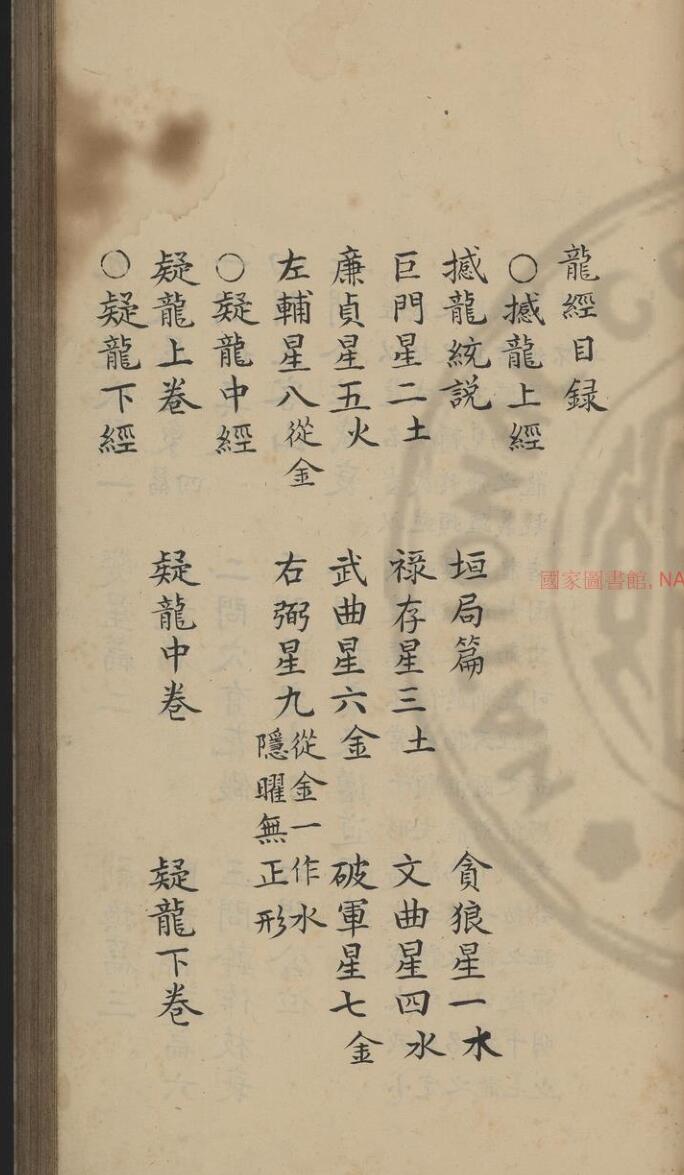 龍經目录
○撼龍上經
撼龍統説 垣局篇 貪狼星一水
巨門星二土 禄存星三土 文曲星四水
廉貞星五火 武曲星六金 破軍星七金
左輔星八從金 右弼星九從金一作水隱曜無正形
○疑龍中經
疑龍上卷 疑龍中卷 疑龍下卷
○疑龍下經
國家圖書館, NA